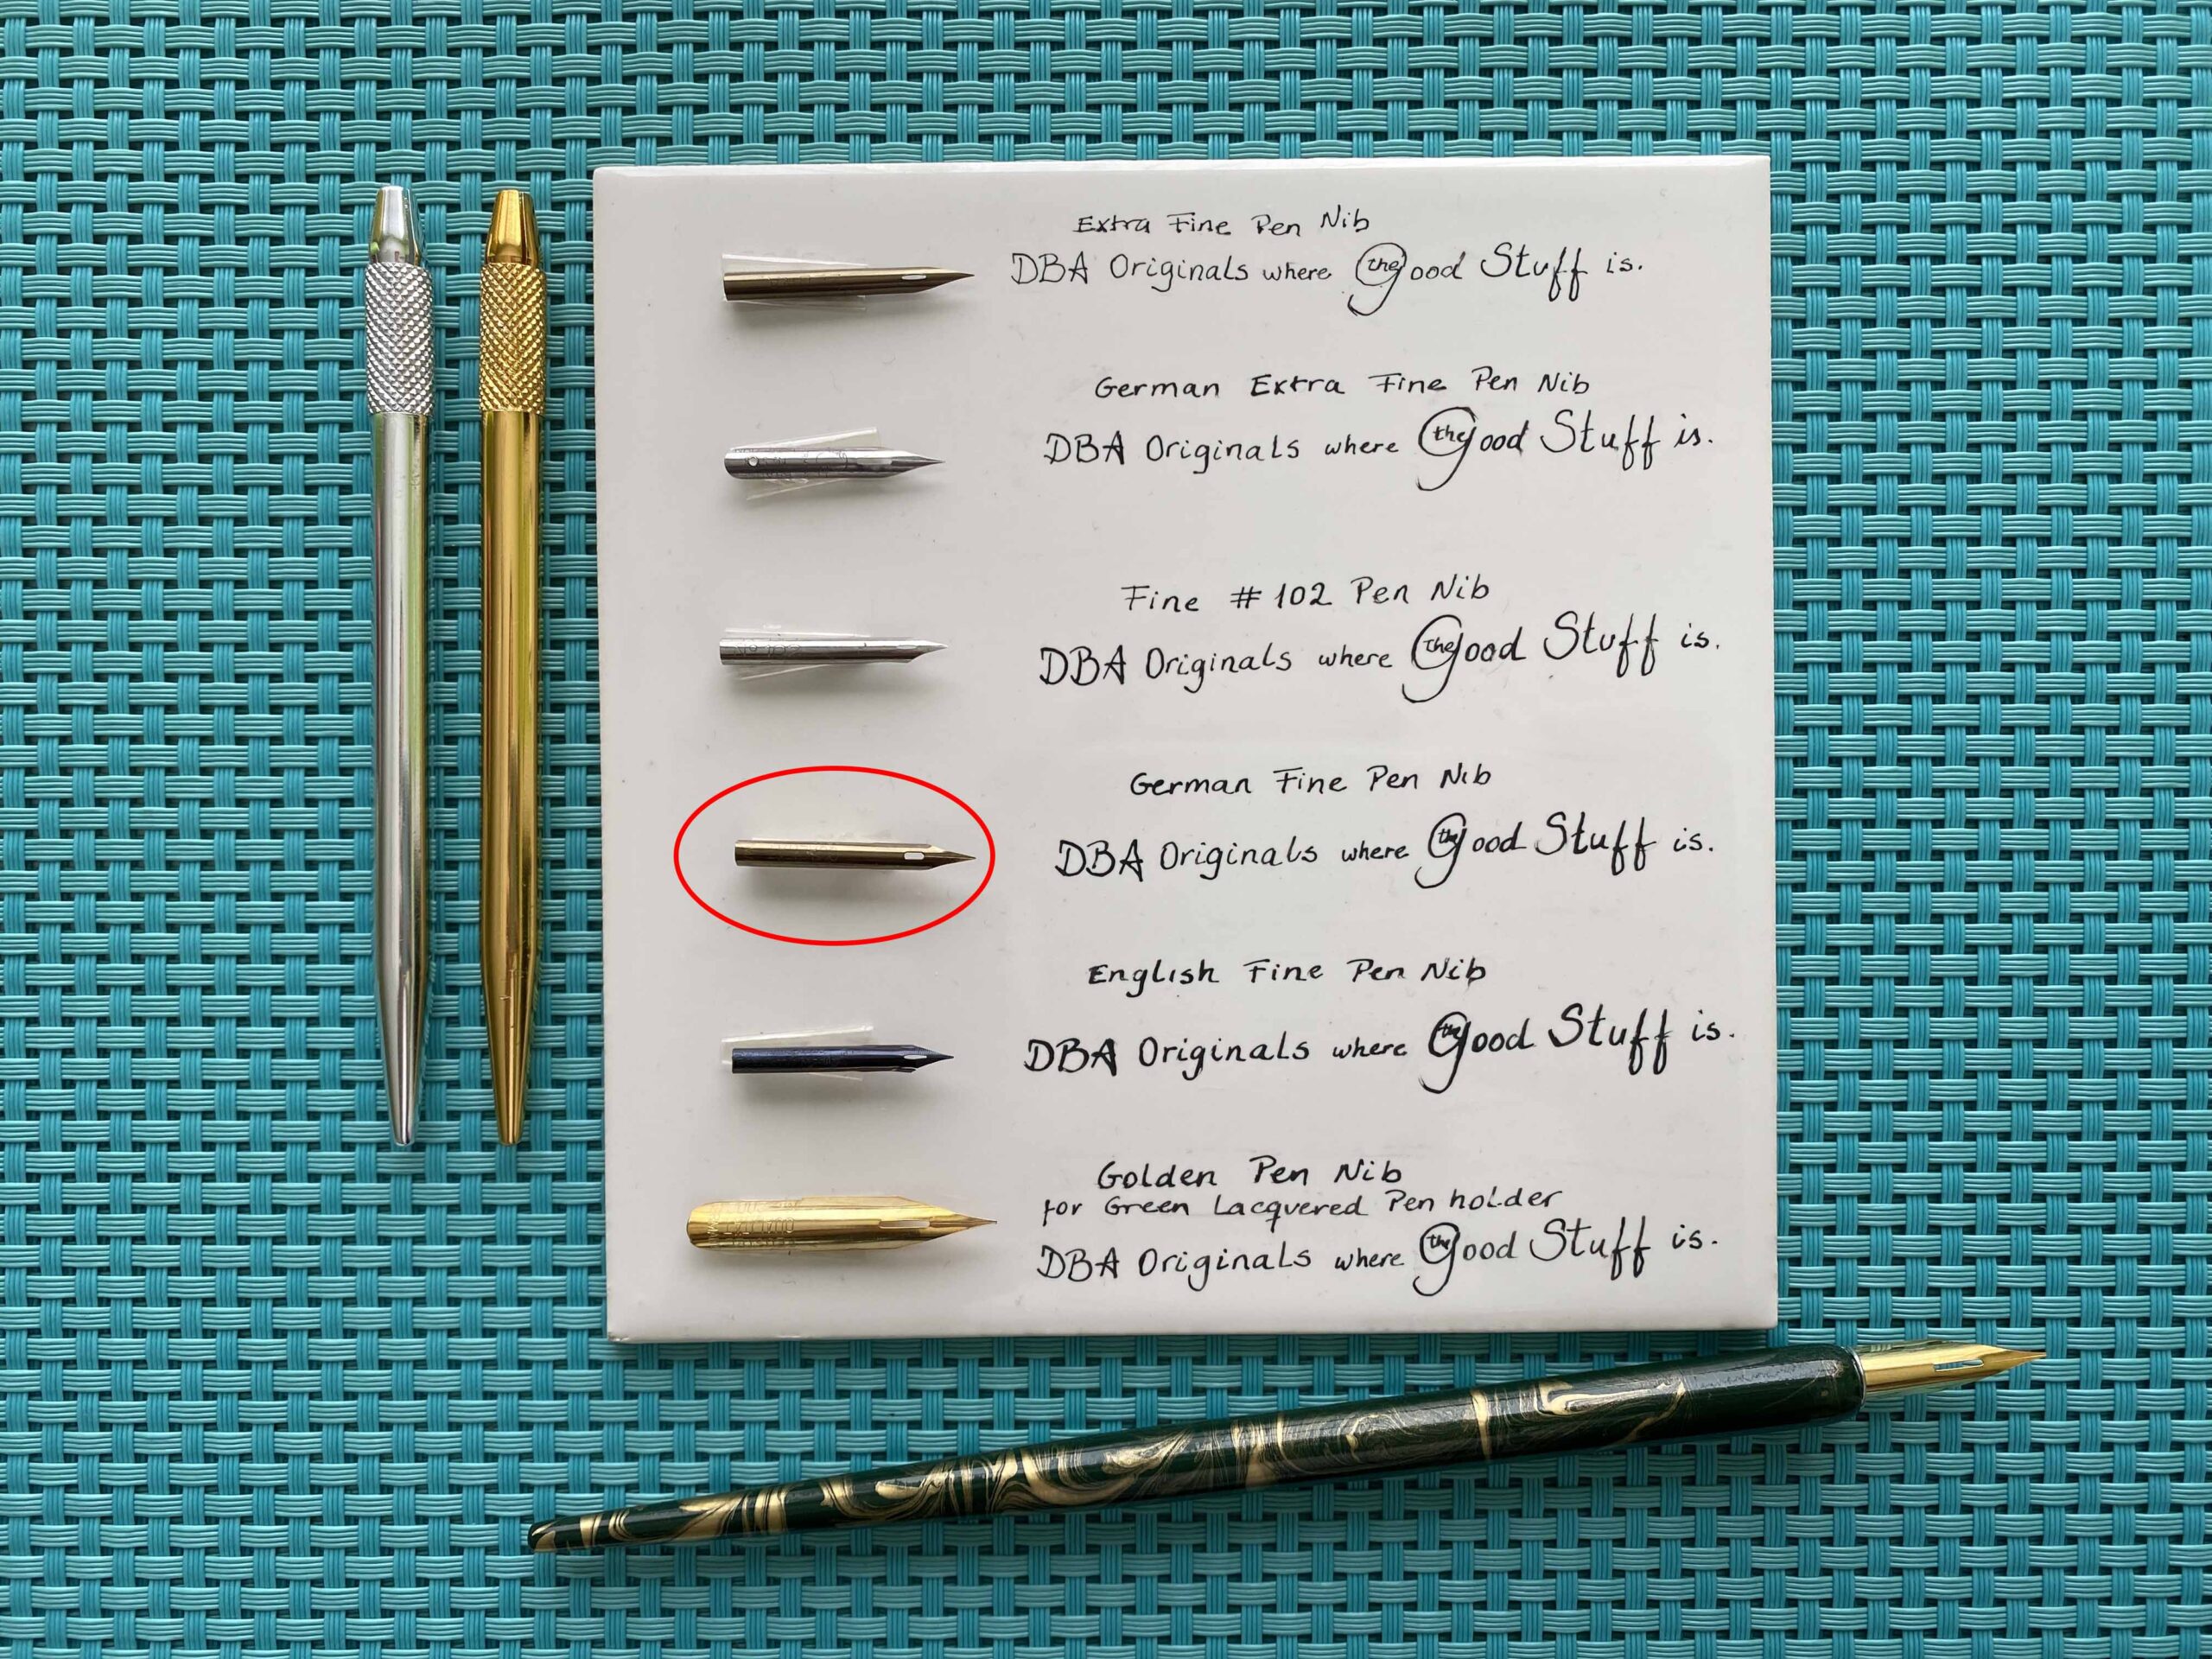 Extra Fine Pen Nib
DBA Originals where the Good Stuff is.
German Extra Fine Pen Nib
DBA Originals where the Good Stuff is.
Fine # 102 Pen Nib
DBA Originals where The Good Stuff is.
German Fine Pen Nib
DBA Originals where the Good Stuff is.
English Fine Pen Nib
DBA Originals where the Good Stuff is.
Golden Pen Nib
for Green Lacquered Pen holder
DBA Originals where the Good Stuff is.